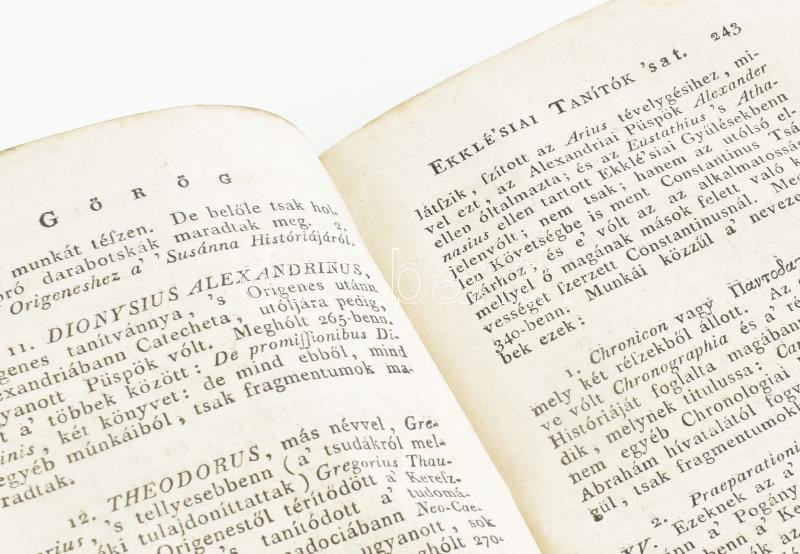 GŐRŐG
munkát téſzen. De belőle tsak hol-
darabotskák maradtak meg. 2.
Origeneshez a' Susánna Históriájáról.
11. DIONYSIUS ALEXANDRINUS,
tanítvánnya, 's Origenes utánn
Catecheta, utóljára pedig,
Püspök vólt. Meghólt 265-benn.
a' többek között: De promiſſionibus Di-
két könyvet: de mind ebből, mind
egyéb múnkáiból, tsak fragmentumok ma-
radtak.
12. THEODORUS, más névvel, Gre-
's tellyesebbenn (a' tsudákról mel-
tulajdoníttattak) Gregorius Thau-
Origenestől térítődött a' Kereſz-
's tanítódott a' tudomá-
Neo-Cae-
ugyanott, sok
270-
EKKLÉ'SIAI TANÍTÓK 'sat. 243
látſzik, ſzított az Arius tévelygésihez, mi-
vel ezt, az Alexandriai Püspök Alexander
ellen óltalmazta; és az Eustathius's Atha-
nasius ellen tartott Ekklé'siai Gyűlésekbenn
jelenvólt; nem tsak; hanem az utólsó el-
len Követségbe is ment Constantinus Tsá-
ſzárhoz, és e' vólt az az alkalmatosság
mellyel ő magának mások felett való
vességet ſzerzett Constantinusnál.
340-benn. Munkái közzűl a' neveze
bek ezek:
1. Chronicon vagy Παντοδα
mely két réſzekből állott. Az
ve vólt Chronographia és a'
Históriáját foglalta magában
dik, melynek titulussa:
nem egyéb Chronologiai
Abrahám hívatalától fogv
gúl, tsak fragmentumok
2. Praeparationi
XV. Ezeknek az a'
ann a' Pogány
a' Ke